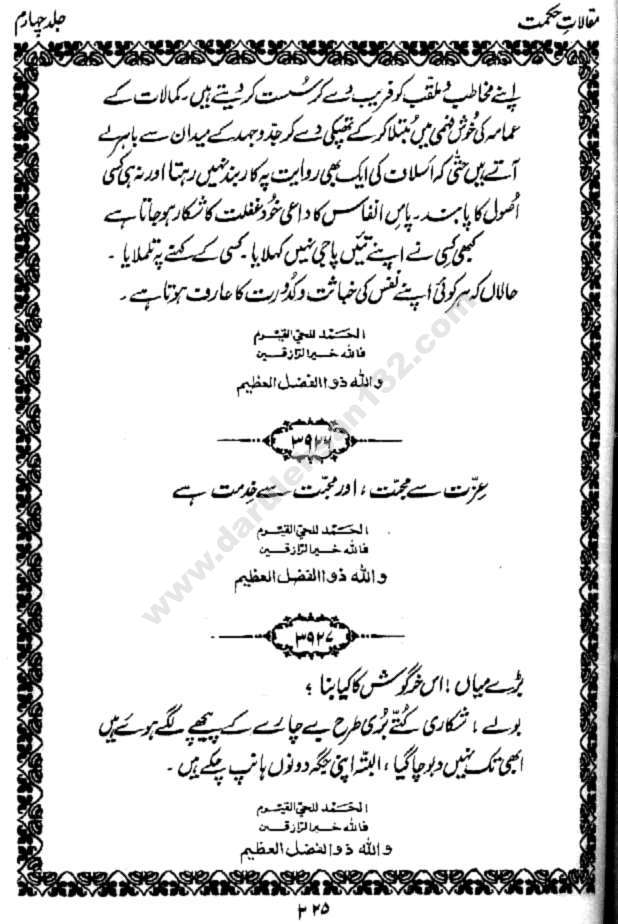 مقالاتِ حکمت
جلد چہارم
اپنے مخاطب و ملقب کو فریب دے کر سُست کر دیتے ہیں۔ کمالات کے
عمامہ کی خُوش فہمی میں مُبتلا کر کے تھپکی دے کر جدّوجہد کے میدان سے باہر لے
آتے ہیں حتّٰی کہ اَسلاف کی ایک بھی روایت پہ کاربند نہیں رہتا اور نہ ہی کسی
اصُول کا پابند۔ پاسِ انفاس کا داعی خُود غفلت کا شکار ہو جاتا ہے
کبھی کسِی نے اپنے تئیں پاجی نہیں کہلایا۔ کسی کے کہنے پر تلملایا۔
حالاں کہ ہر کوئی اپنے نفس کی خباثت و کدُورت کا عارف ہوتا ہے۔
الحَمد للحیّ القیّوم
فاللہ خیر الرّازقین
واللہ ذوالفضل العظیم
۳۹۲۶
عِزّت سے محبّت ، اور محبّت سے خِدمت ہے
الحَمد للحیّ القیّوم
فاللہ خیر الرّازقین
واللہ ذوالفضل العظیم
۳۹۲۷
بڑے میاں ! اس خرگوش کا کیا بنا ؟
بولے ، شکاری کُتّے بُری طرح بے چارے کے پیچھے لگے ہوئے ہیں
ابھی تک نہیں دبوچا گیا ، البتّہ اپنی جگہ دونوں ہانپ چکے ہیں۔
الحَمد للحیّ القیّوم
فاللہ خیر الرّازقین
واللہ ذوالفضل العظیم
۲۲۵